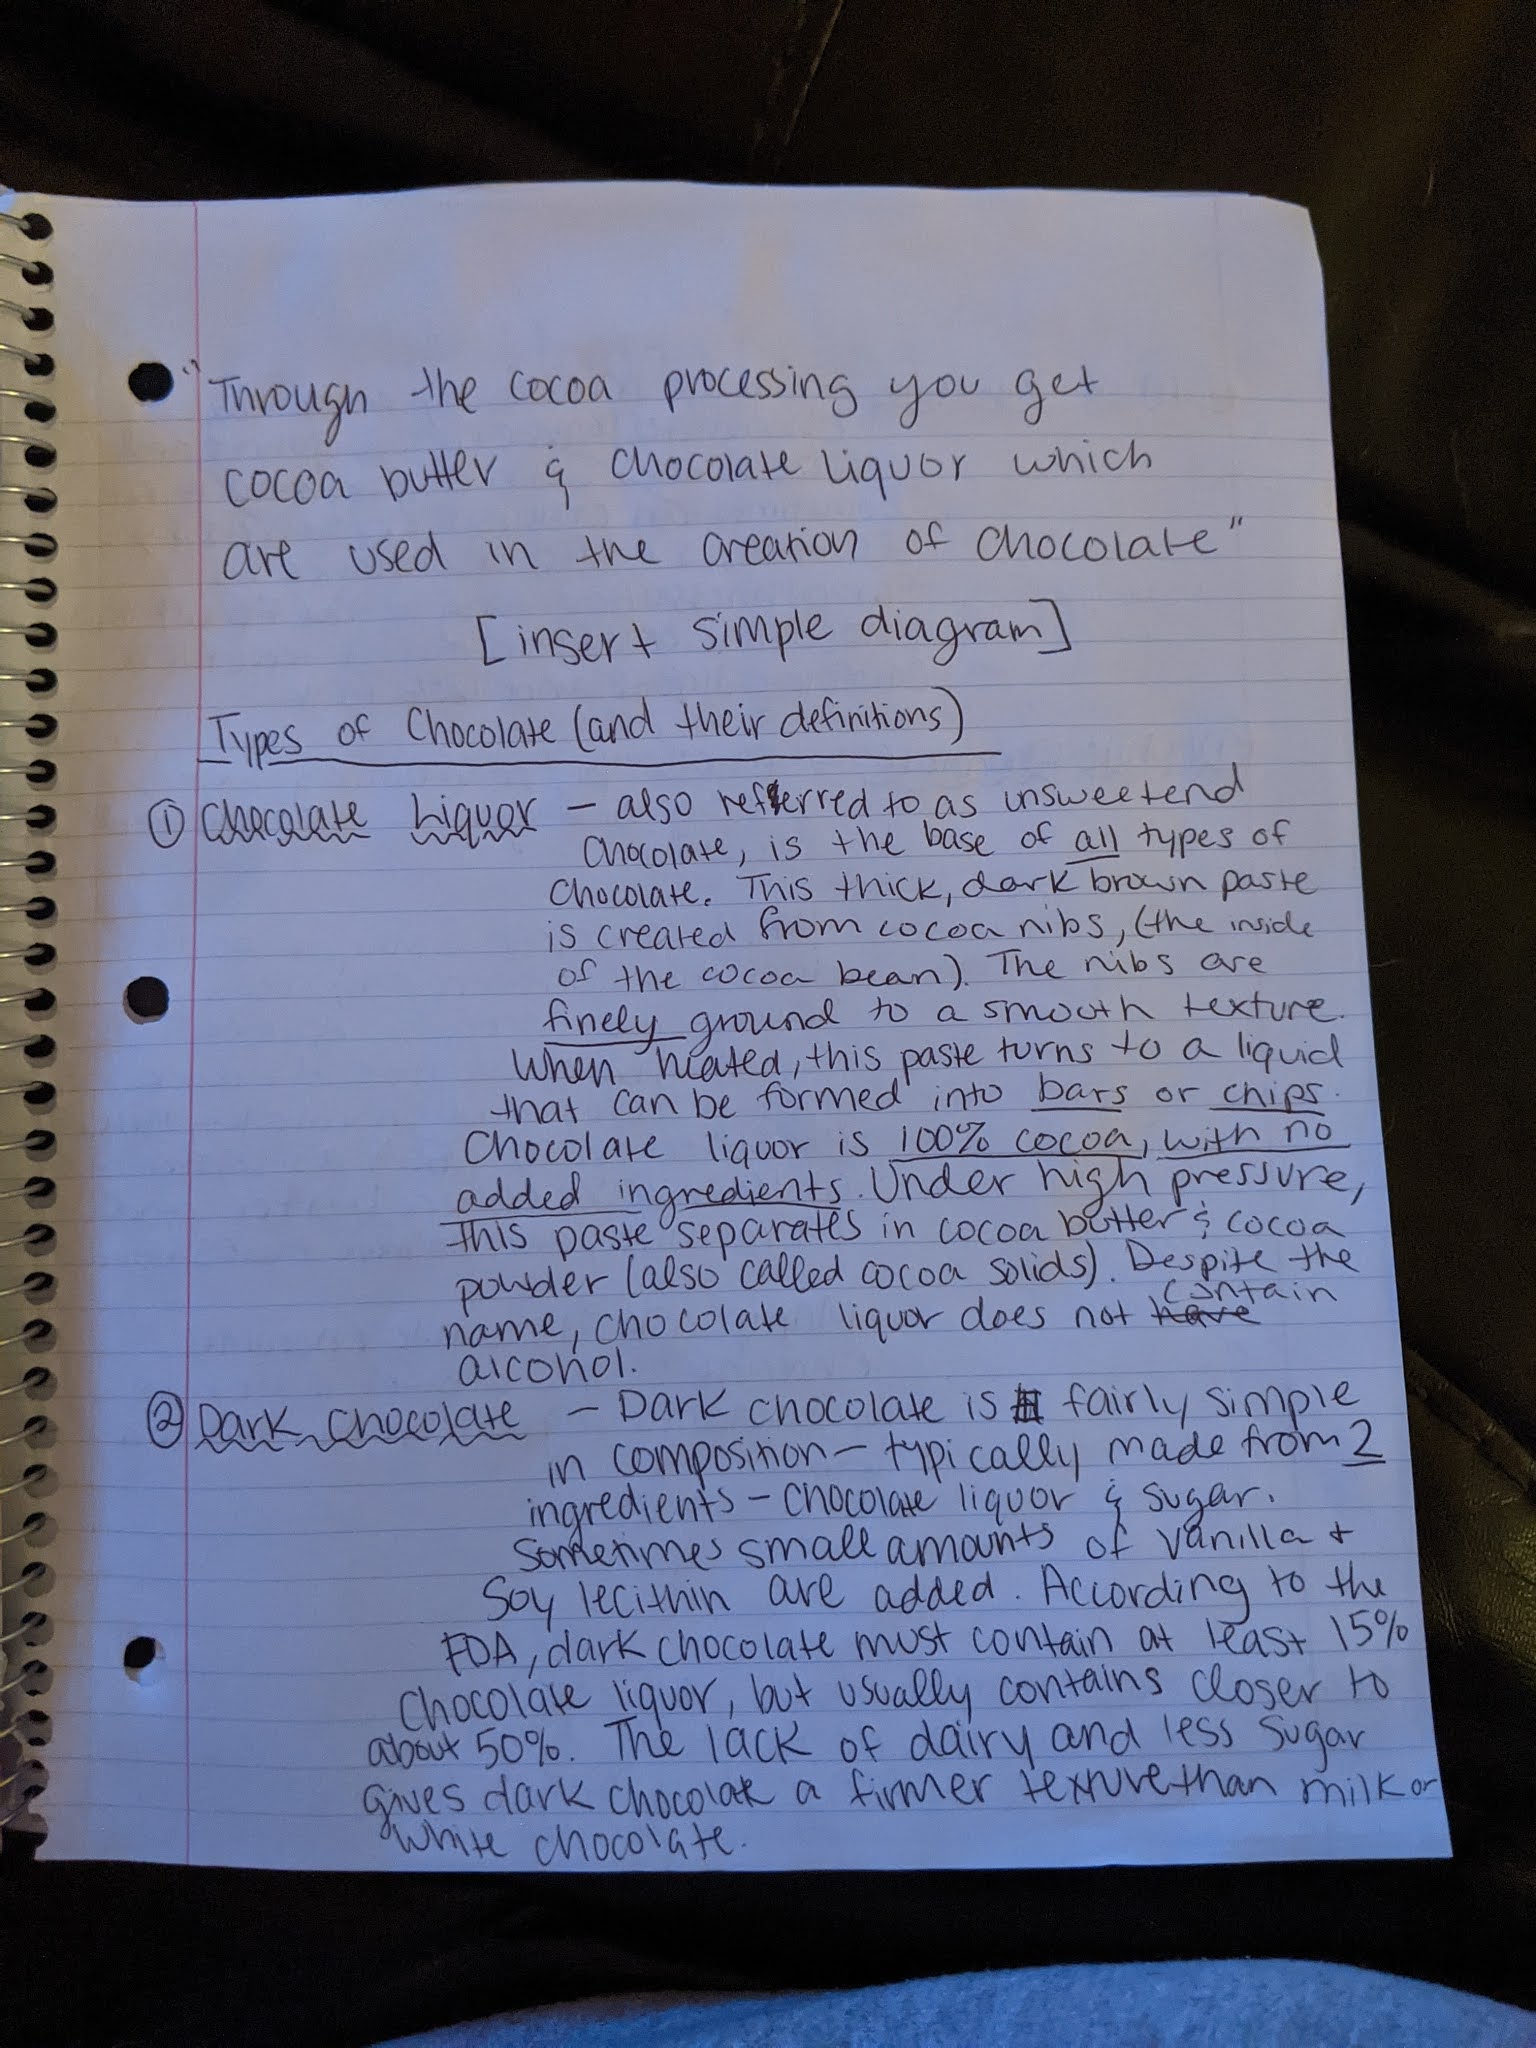 "Through the cocoa processing you get
cocoa butter & chocolate liquor which
are used in the creation of chocolate"
[insert simple diagram]
Types of Chocolate (and their definitions)
① Chocolate Liquor – also referred to as unsweetend
chocolate, is the base of all types of
chocolate. This thick, dark brown paste
is created from cocoa nibs, (the inside
of the cocoa bean). The nibs are
finely ground to a smooth texture.
When heated, this paste turns to a liquid
that can be formed into bars or chips.
Chocolate liquor is 100% cocoa, with no
added ingredients. Under high pressure,
this paste separates in cocoa butter & cocoa
powder (also called cocoa solids). Despite the
name, chocolate liquor does not have contain
alcohol.
② Dark Chocolate – Dark chocolate is fairly simple
in composition – typically made from 2
ingredients – chocolate liquor & sugar.
Sometimes small amounts of vanilla +
soy lecithin are added. According to the
FDA, dark chocolate must contain at least 15%
chocolate liquor, but usually contains closer to
about 50%. The lack of dairy and less sugar
gives dark chocolate a firmer texture than milk or
white chocolate.